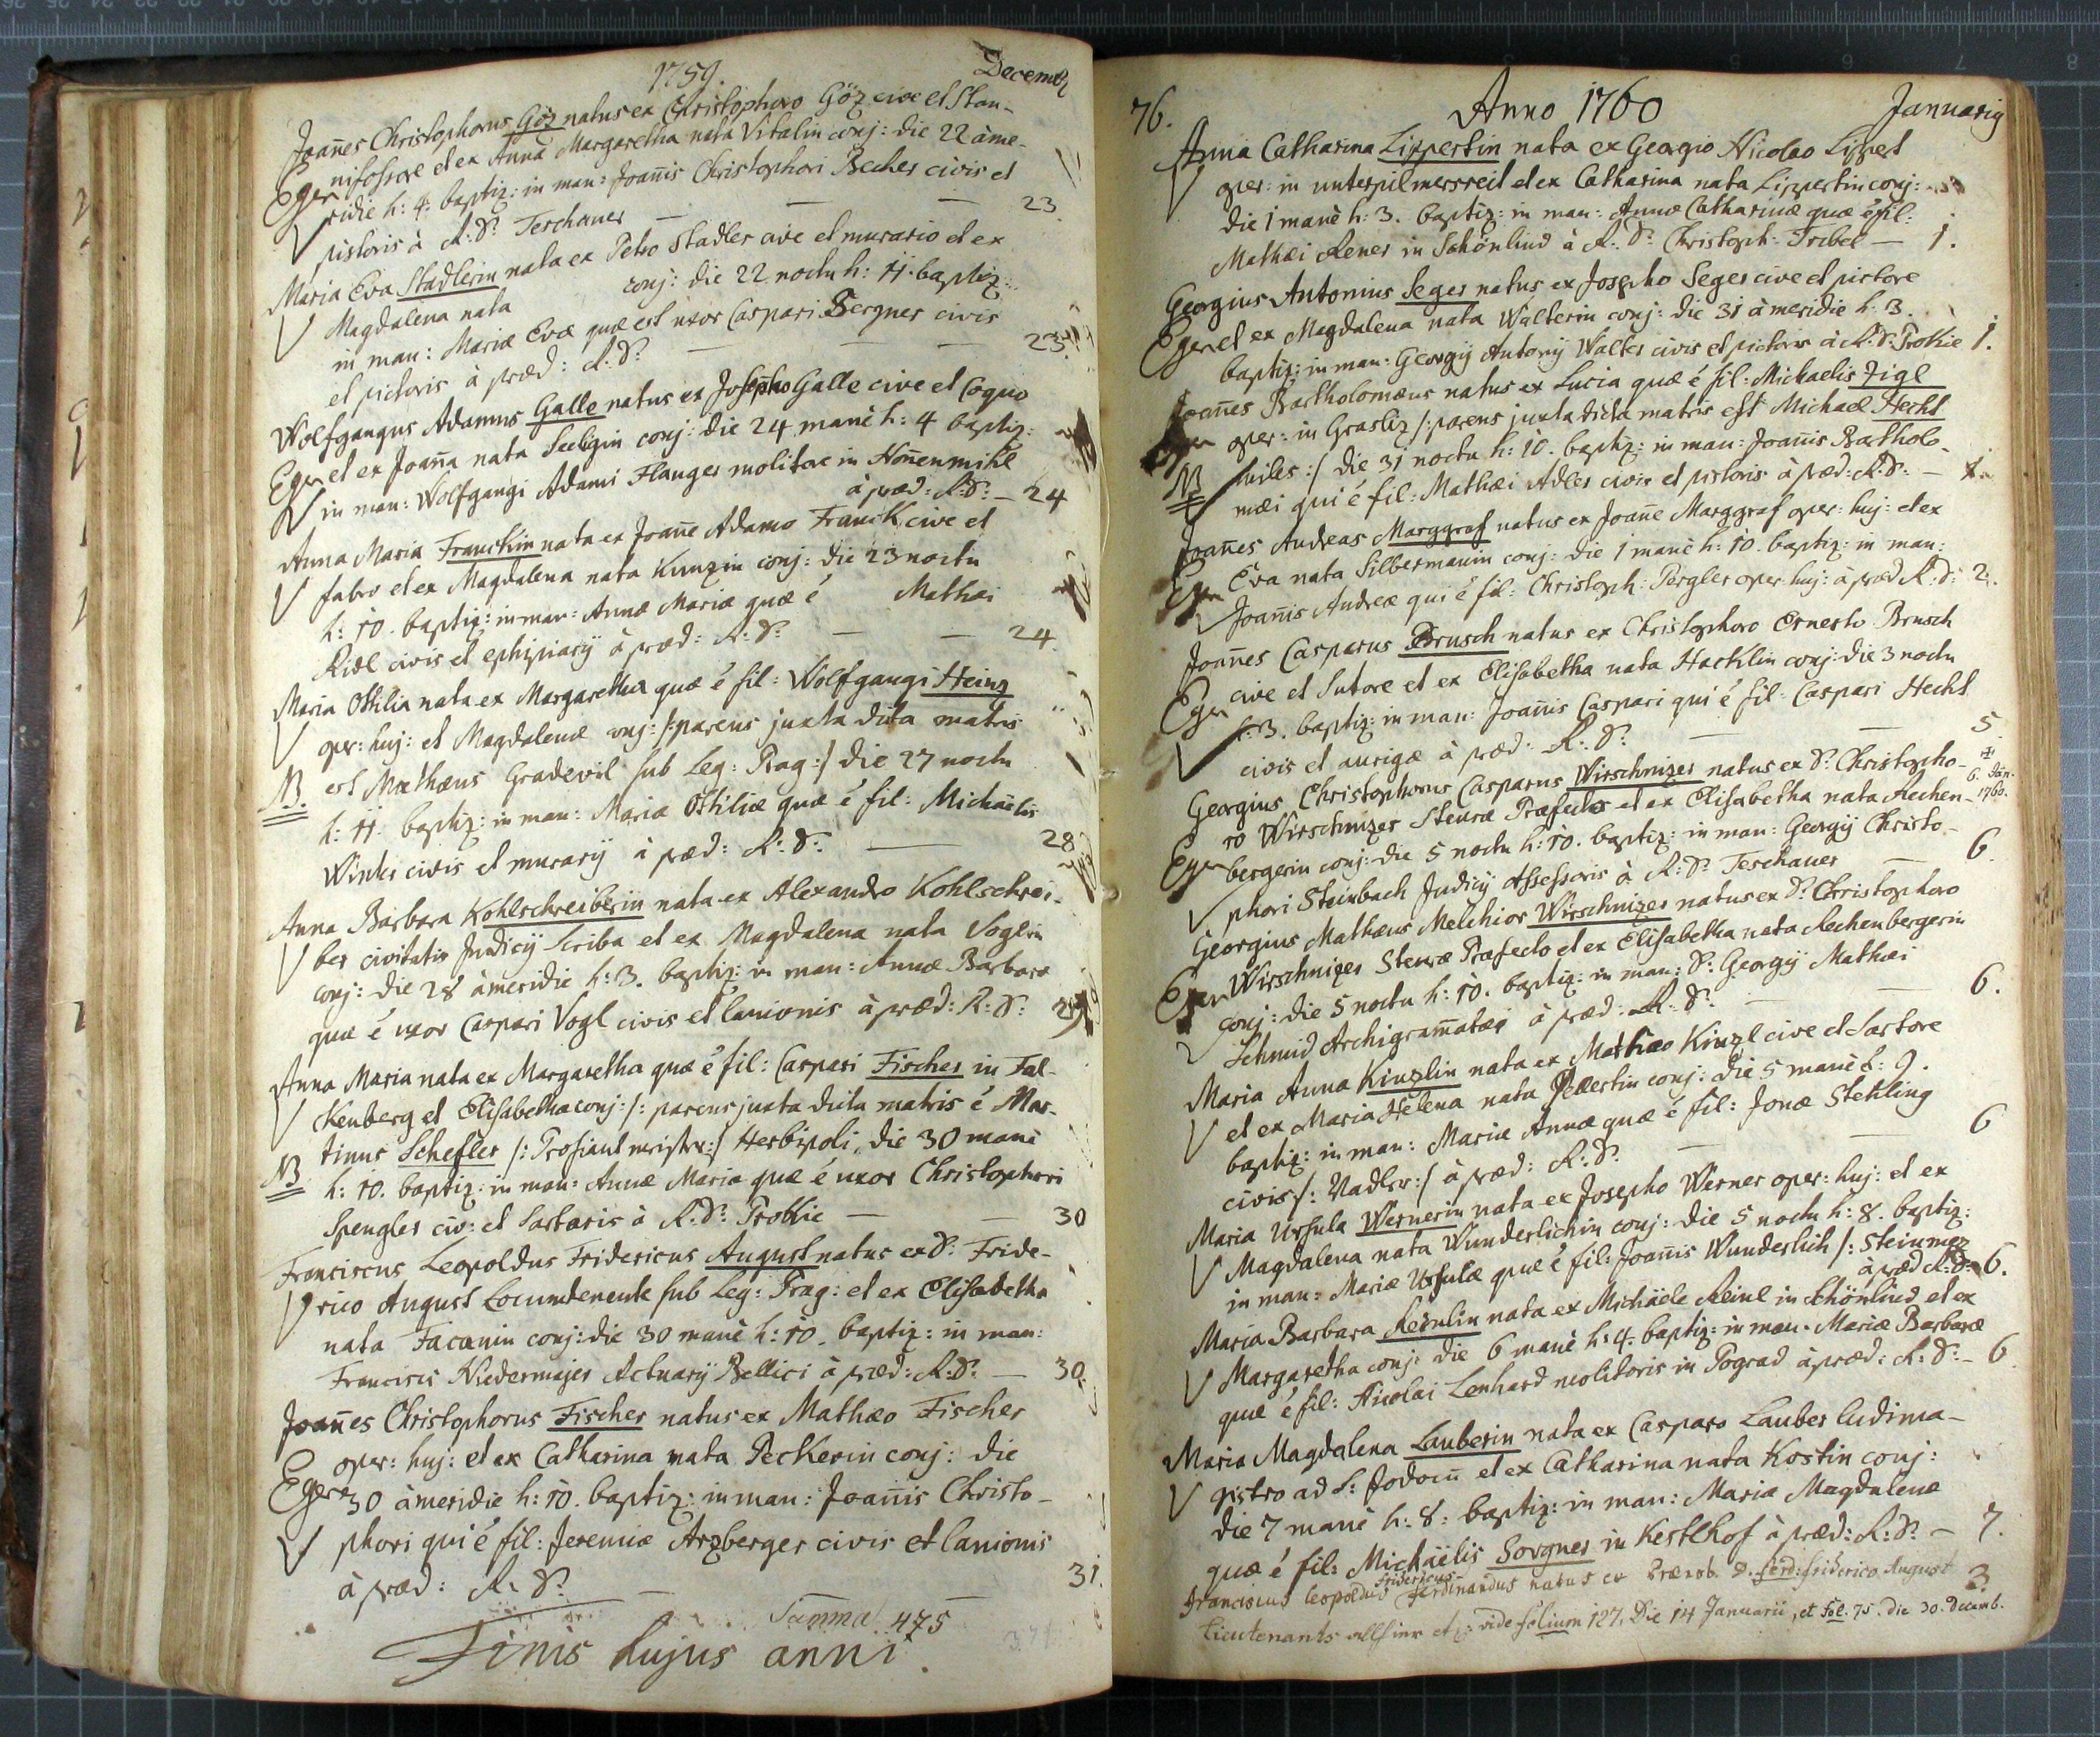 1759. Decemb
Joan̄es Christophorus Göz natus ex Christophoro Göz cive et Stan-
nifossore et ex Anna Margaretha nata Vitalin conj: die 22 à me-
Eger ridie h: 4. baptiz: in man: Joan̄is Christophori Becher civis et
pistoris à R: D: Teschauer — — — 23.
Maria Eva Stadlerin nata ex Petro Stadler cive et murario et ex
Magdalena nata conj: die 22 noctu h: 11. baptiz:
in man: Mariæ Evæ quæ est uxor Caspari Bergner civis
et pictoris à præd: R: D: — — — 23.
Wolfgangus Adamus Galle natus ex Josepho Galle cive et Coquo
Eger et ex Joan̄a nata Seeligin conj: die 24 manè h: 4 baptiz:
in man: Wolfgangi Adami Flauger molitore in Non̄enmihl
à præd: R: D: — 24
Anna Maria Franckin nata ex Joan̄e Adamo Franck cive et
fabro et ex Magdalena nata Kunzin conj: die 23 noctu
h: 10. baptiz: in man: Annæ Mariæ quæ é Mathæi
Ridl civis et ephipiarij à præd: R: D: — — 24.
Maria Ottilia nata ex Margaretha quæ é fil: Wolfgangi Heinz
oper: huj: et Magdalenæ conj: /: parens juxta dicta matris
NB. est Mathæus Gradevil sub Leg: Prag :/ die 27 noctu
h: 11. baptiz: in man: Mariæ Ottiliæ quæ é fil: Michaëlis
Winter civis et murarij à præd: R: D: — 28
Anna Barbara Kohlschreiberin nata ex Alexandro Kohlschrei-
ber civitatis Judicij Scriba et ex Magdalena nata Voglin
conj: die 28 à meridie h: 3. baptiz: in man: Annæ Barbaræ
quæ é uxor Caspari Vogl civis et lanionis à præd: R: D: 29
Anna Maria nata ex Margaretha quæ é fil: Caspari Fischer in Fal-
kenberg et Elisabethæ conj: /: parens juxta dicta matris é Mar-
tinus Schefler /: Profiantmeister :/ Herbipoli, die 30 manè
NB h: 10. baptiz: in man: Annæ Maria quæ é uxor Christophori
Spengler civ: et Sartoris à R: D: Prokie — — 30
Franciscus Leopoldus Fridericus August natus ex D: Fride-
rico August Locumtenente sub Leg: Prag: et ex Elisabetha
nata Facanin conj: die 30 manè h: 10. baptiz: in man:
Francisci Niedermajer Actuarij Bellici à præd: R: D: — 30.
Joan̄es Christophorus Fischer natus ex Mathæo Fischer
oper: huj: et ex Catharina nata Peckerin conj: die
Eger 30 à meridie h: 10. baptiz: in man: Joan̄is Christo-
phori qui é fil: Jeremiæ Arzberger civis et lanionis
à præd: R: D: — — 31.
Summa 475
Finis hujus anni.
76. Anno 1760 Januarij
Anna Catharina Lippertin nata ex Georgio Nicolao Lippert
oper: in unterpilmersreit et ex Catharina nata Lippertin conj:
die 1 manè h: 3. baptiz: in man: Annæ Catharinæ quæ é fil:
Mathæi Rener in Schönlind à R: D: Christoph: Tribel — 1.
Georgius Antonius Seger natus ex Josepho Seger cive et pictore
Eger et ex Magdalena nata Walterin conj: die 31 à meridie h: 3.
baptiz: in man: Georgij Antonij Walter civis et pictoris à R: D: Prokie 1.
Joan̄es Bartholomæus natus ex Lucia quæ é fil: Michaelis Zigl
Eger oper: in Grasliz /: parens juxta dicta matris est Michael Hecht
NB miles :/ die 31 noctu h: 10. baptiz: in man: Joan̄is Bartholo-
mæi qui é fil: Mathæi Adler civis et pistoris à præd: R: D: — 1.
Joan̄es Andreas Marggraf natus ex Joan̄e Marggraf oper: huj: et ex
Eger Eva nata Silbermanin conj: die 1 manè h: 10. baptiz: in man:
Joan̄is Andreæ qui é fil: Christoph: Pergler oper huj: à præd R: D: 2.
Joan̄es Casparus Brusch natus ex Christophoro Ernesto Brusch
Eger cive et Sutore et ex Elisabetha nata Hachlin conj: die 3 noctu
h: 3. baptiz: in man: Joan̄is Caspari qui é fil: Caspari Hecht
civis et aurigæ à præd: R: D: — — 5.
Georgius Christophorus Casparus Wirschnizer natus ex D: Christopho-
6. Jan. 1760.
ro Wirschnizer Steuræ Præfecto et ex Elisabetha nata Rechen-
Eger bergerin conj: die 5 noctu h: 10. baptiz: in man: Georgij Christo-
phori Steinbach Judicij Assessoris à R: D: Teschauer — 6.
Georgius Mathæus Melchior Wirschnizer natus ex D: Christophoro
Eger Wirschnizer Steuræ Præfecto et ex Elisabetha nata Rechenbergerin
conj: die 5 noctu h: 10. baptiz: in man: D: Georgij Mathæi
Schmid Archigram̄atæi à præd: R: D: — — 6.
Maria Anna Kinzlin nata ex Mathæo Kinzl cive et Sartore
et ex Maria Helena nata conj: die 5 manè h: 9.
baptiz: in man: Mariæ Annæ quæ é fil: Jonæ Stehling
civis /: Nadler :/ à præd: R: D: — — 6
Maria Ursula Wernerin nata ex Josepho Werner oper: huj: et ex
Magdalena nata Wunderlichin conj: die 5 noctu h: 8. baptiz:
in man: Mariæ Ursulæ quæ é fil: Joan̄is Wunderlich /: Steinmez
à præd R: D: 6.
Maria Barbara Reinlin nata ex Michäele Reinl in Schönlind et ex
Margaretha conj: die 6 manè h: 4. baptiz: in man: Mariæ Barbaræ
quæ é fil: Nicolai Lenhard molitoris in Pograd à præd: R: D: — 6.
Maria Magdalena Lauberin nata ex Casparo Lauber ludima-
gistro ad S: Jodocum̄ et ex Catharina nata Kostin conj:
die 7 manè h: 8: baptiz: in man: Mariæ Magdalenæ
quæ é fil: Michäelis Sorgner in Kestlhof à præd: R: D: — 7.
Franciscus Leopoldus Fridericus Ferdinandus natus ex Prænob. D. Ferd: Friderico August 3
Lieutenants allhier et: vide folium 127. Die 14 Januarii, et Fol. 75. die 30. Decemb.